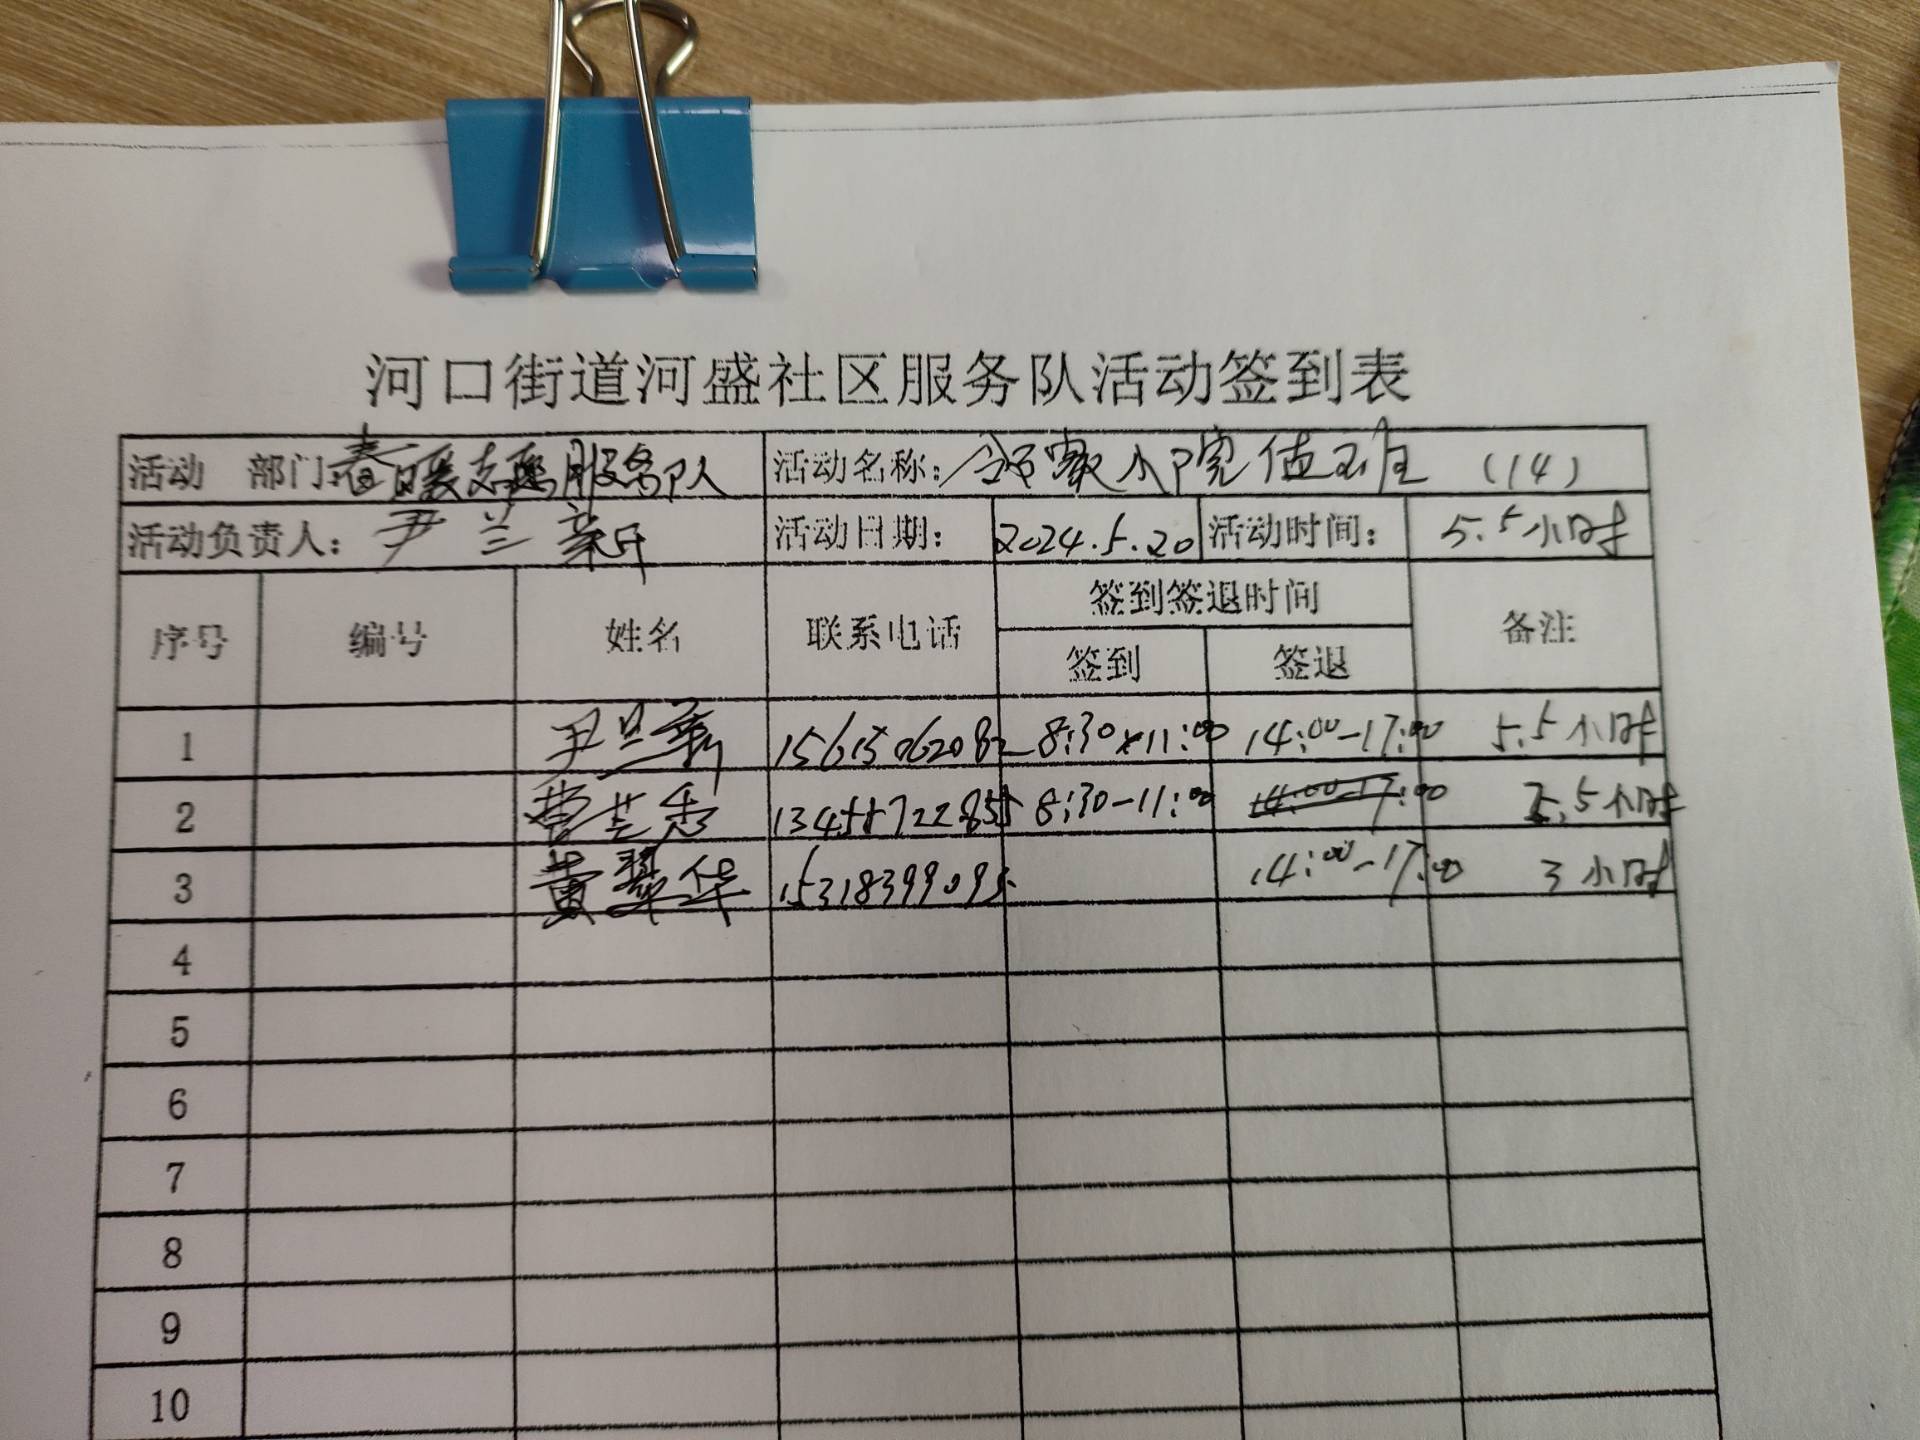 河口街道河盛社区服务队活动签到表
活动 部门:春暖志愿服务队 活动名称: 小院值班 (14)
活动负责人: 尹兰新 活动日期: 2024.5.20 活动时间: 5.5小时
序号 编号 姓名 联系电话 签到签退时间 备注
签到 签退
1 尹兰新 15615062082 8:30-11:00 14:00-17:00 5.5小时
2 曹兰香 13455722855 8:30-11:00 14:00-17:00 2.5小时
3 黄翠华 15318399095 14:00-17:00 3小时
4
5
6
7
8
9
10